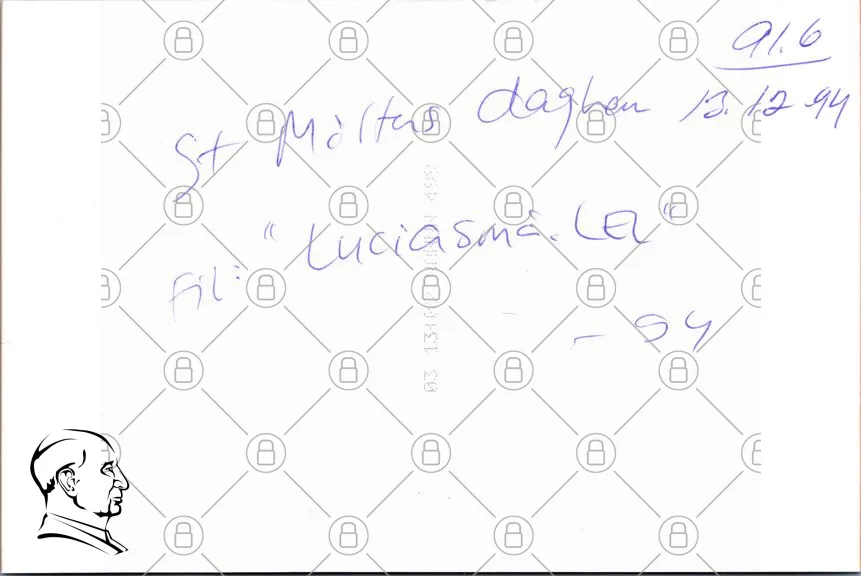 91.6
St Mårtens daghem 13.12.94
Fil: "Luciasmå.LEL"
- 94